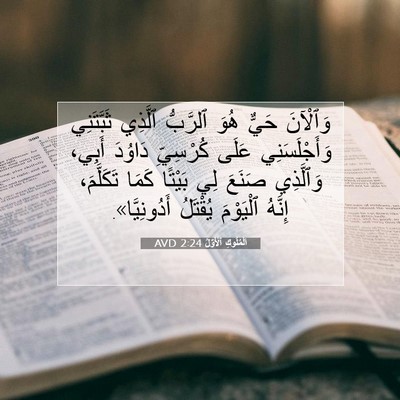 وَٱلْآنَ حَيٌّ هُوَ ٱلرَّبُّ ٱلَّذِي ثَبَّتَنِي
وَأَجْلَسَنِي عَلَى كُرْسِيِّ دَاوُدَ أَبِي،
وَٱلَّذِي صَنَعَ لِي بَيْتًا كَمَا تَكَلَّمَ،
إِنَّهُ ٱلْيَوْمَ يُقْتَلُ أَدُونِيَّا».
اَلْمُلُوكِ ٱلْأَوَّلُ 2:24 AVD